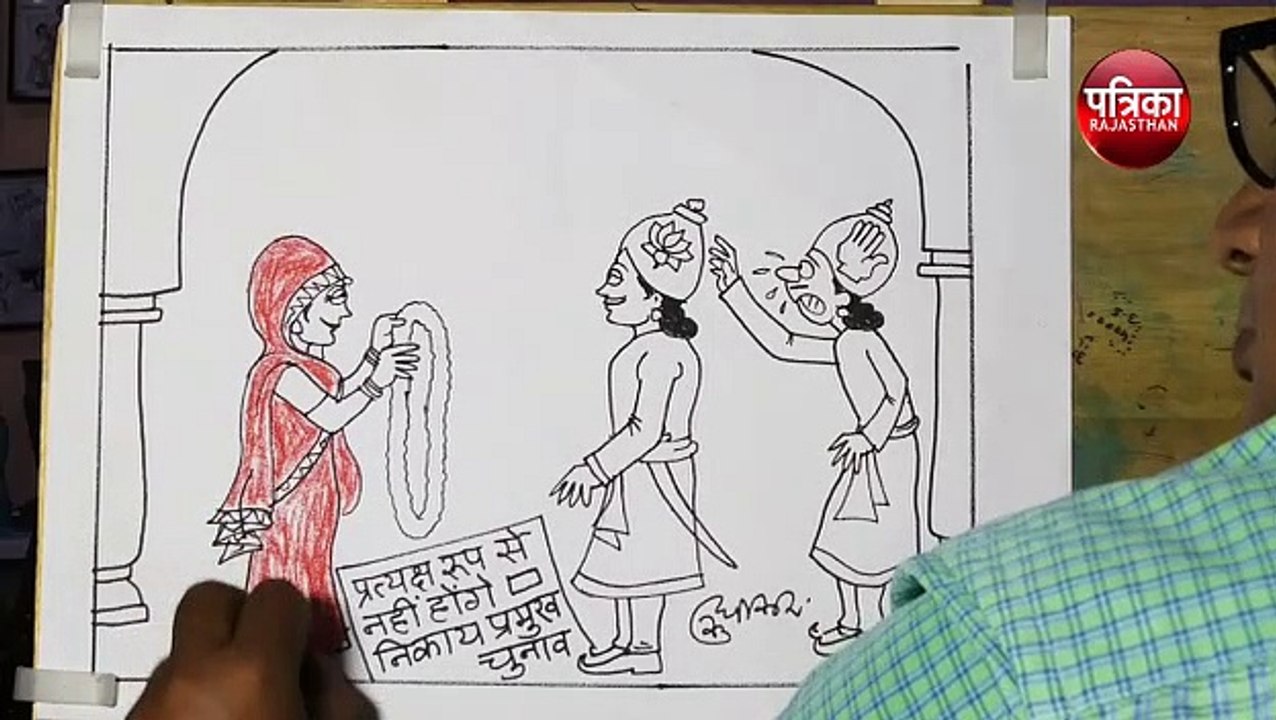 पत्रिका
RAJASTHAN
प्रत्यक्ष रूप से
नहीं होंगे
निकाय प्रमुख
चुनाव